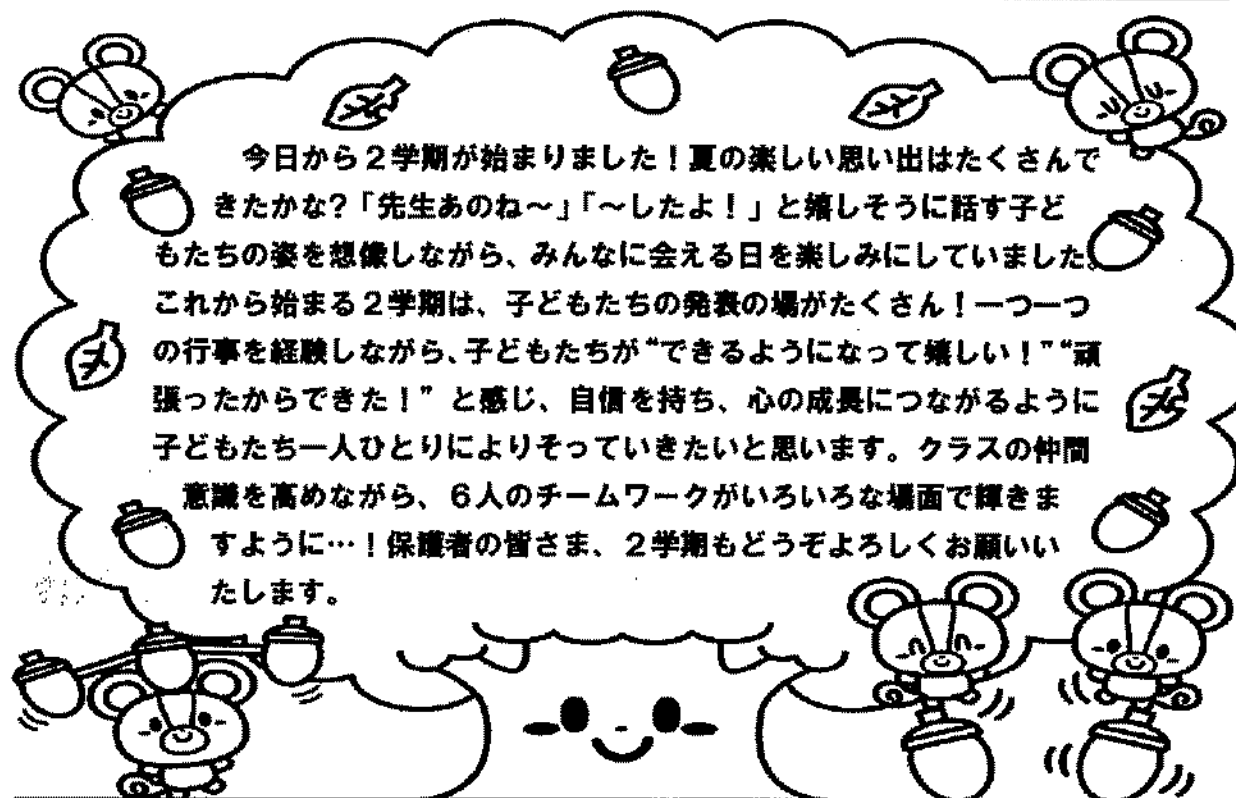 今日から２学期が始まりました！夏の楽しい思い出はたくさんで
きたかな?「先生あのね～」「～したよ！」と嬉しそうに話す子ど
もたちの姿を想像しながら、みんなに会える日を楽しみにしていました。
これから始まる２学期は、子どもたちの発表の場がたくさん！一つ一つ
の行事を経験しながら、子どもたちが“できるようになって嬉しい！”“頑
張ったからできた！”と感じ、自信を持ち、心の成長につながるように
子どもたち一人ひとりによりそっていきたいと思います。クラスの仲間
意識を高めながら、６人のチームワークがいろいろな場面で輝きま
すように…！保護者の皆さま、２学期もどうぞよろしくお願いい
たします。